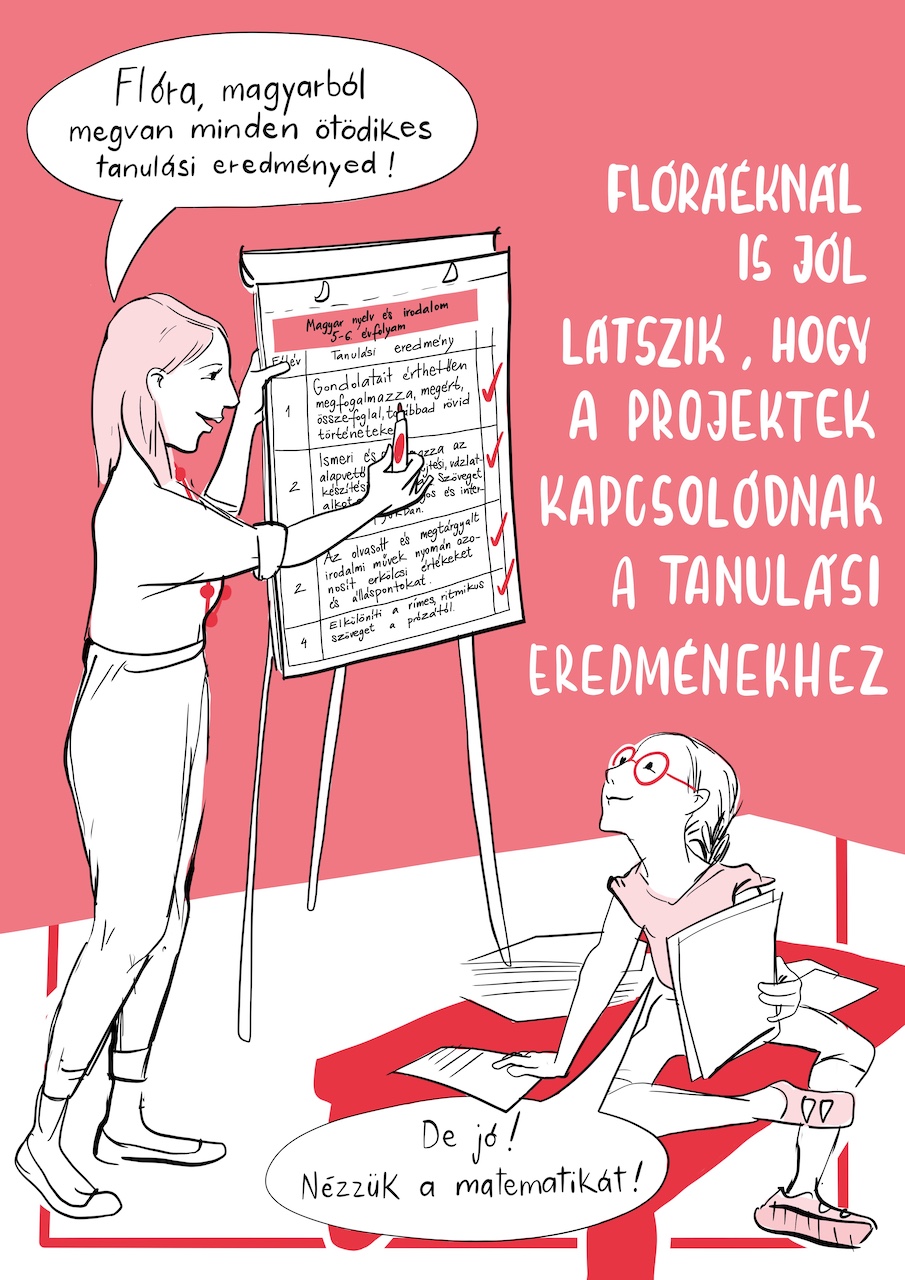 Flóra, magyarból
megvan minden ötödikes
tanulási eredményed!
FLÓRÁÉKNÁL
IS JÓL
LÁTSZIK, HOGY
A PROJEKTEK
KAPCSOLÓDNAK
A TANULÁSI
EREDMÉNEKHEZ
Magyar nyelv és irodalom
5-6. évfolyam
Tanulási eredmény
1
Gondolatait érthetően
megfogalmazza, megért,
összefoglal, továbbad rövid
történeteke
2
Ismeri és azza az
alapvető jtési, vázlat-
készítési Szöveget
alkot gos és inter-
kban.
2
Az olvasott és megtárgyalt
irodalmi művek nyomán azo-
nosít erkölcsi értékeket
és álláspontokat.
4
Elkülöníti a rímes, ritmikus
szöveget a prózától.
De jó!
Nézzük a matematikát!